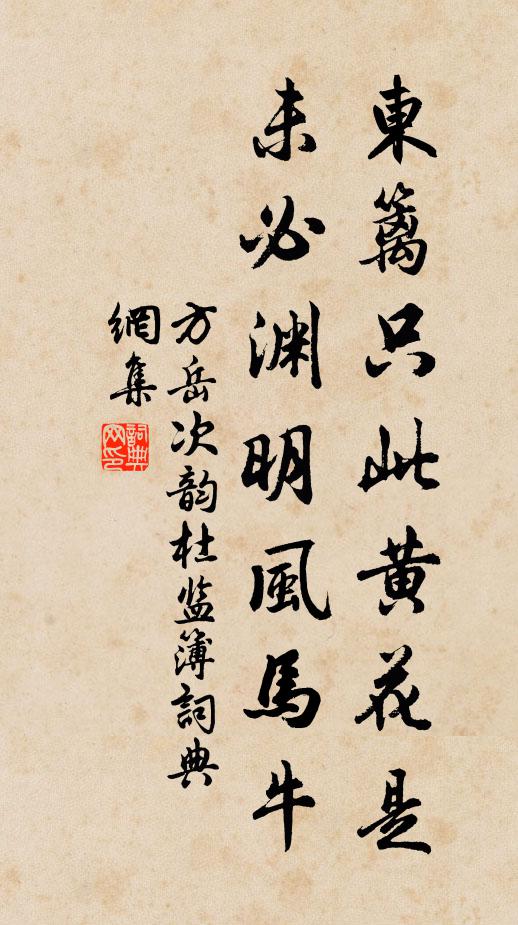 東籬只此黄花是
未必渊明風馬牛
方岳次韵杜监簿詞典
網集
詞典
网印